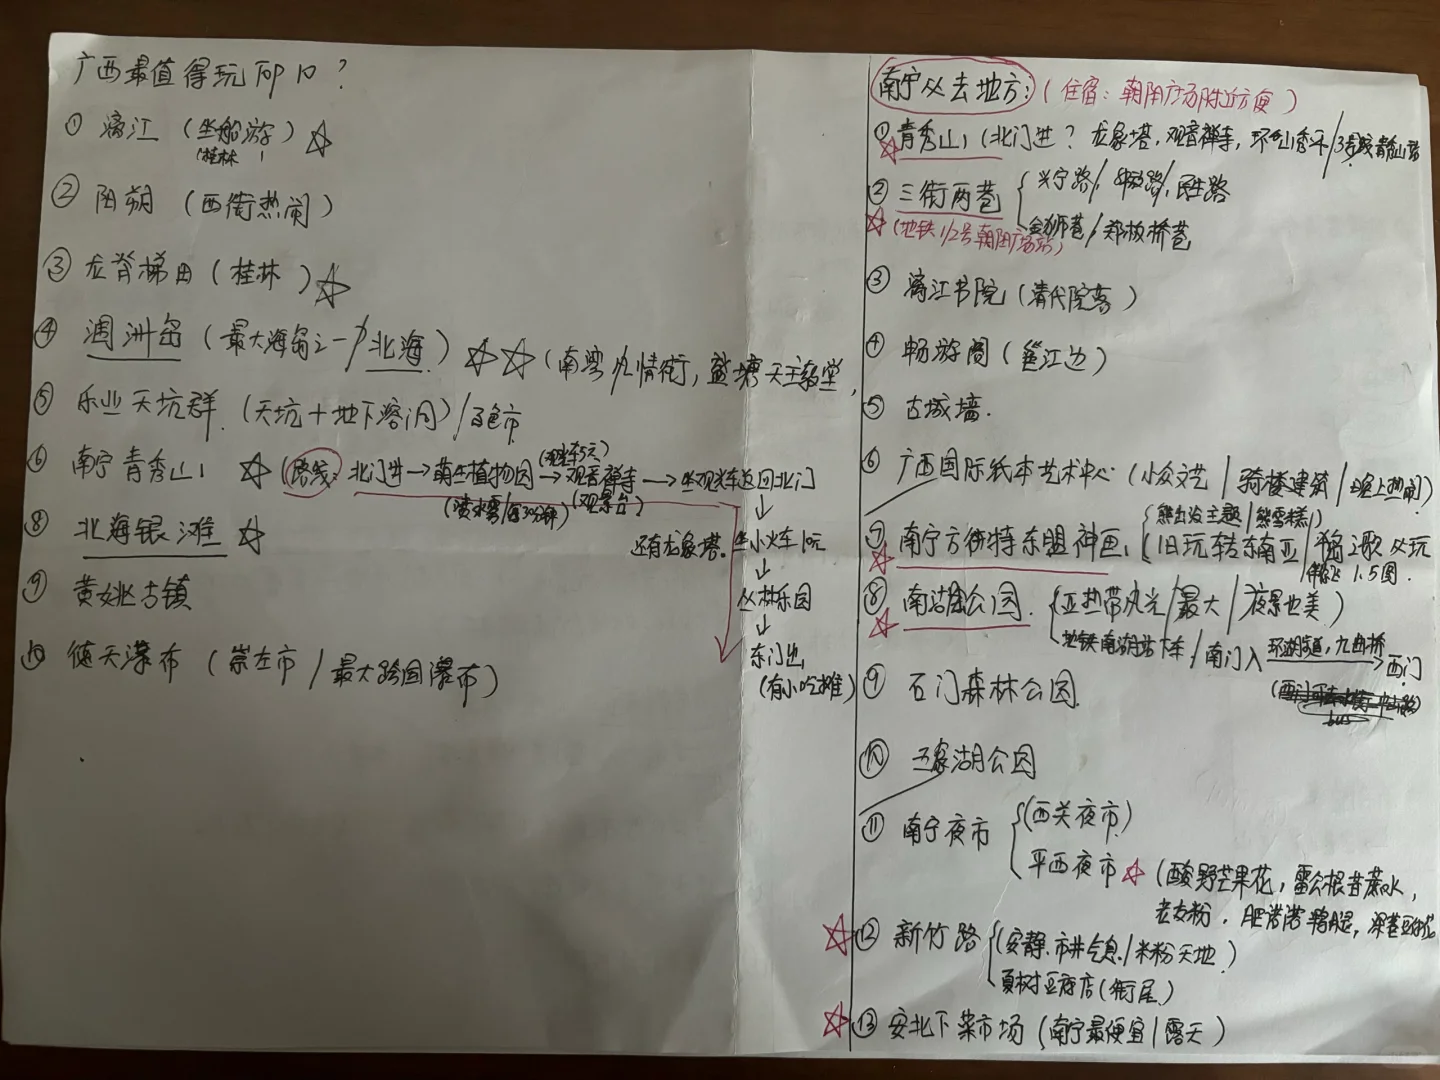 广西最值得玩Top 10？
① 漓江（坐船游）☆
（桂林）
② 阳朔（西街热闹）
③ 龙脊梯田（桂林）☆
④ 涠洲岛（最大海岛之一/北海）☆☆（南湾风情街，盛塘天主教堂，
⑤ 乐业天坑群（天坑+地下溶洞）/百色市
⑥ 南宁青秀山 ☆（路线：北门进→萌生植物园→观音禅寺→坐观光车返回北门
（观光车5元）
（喷水雾/每30分钟）（观景台）
↓
还有龙象塔。坐小火车10元
↓
丛林乐园
↓
东门出
（有小吃摊）
⑧ 北海银滩 ☆
⑨ 黄姚古镇
⑩ 德天瀑布（崇左市/最大跨国瀑布）
南宁必去地方：（住宿：朝阳广场附近方便）
① ☆青秀山（北门进？龙象塔，观音禅寺，/3号线青秀山站
② 三街两巷｛兴宁路/解放路/民生路
金狮巷/郑板桥巷
☆（地铁1/2号朝阳广场站）
③ 漓江书院（清代院落）
④ 畅游阁（邕江边）
⑤ 古城墙.
⑥ 广西国际纸本艺术中心（小众文艺/骑楼建筑/晚上热闹）
（熊出没主题/熊雪糕）
⑦ ☆南宁方特东盟神画｛旧玩转东南亚/ 之歌必玩
1.5
⑧ ☆南湖公园.｛亚热带风光/最大/夜景也美）
地铁南湖站下车/南门入 环湖步道，九曲桥→西门
⑨ 石门森林公园.
⑩ 五象湖公园
⑪ 南宁夜市｛（西关夜市）
平西夜市☆（酸野芒果花，雷公根甘蔗水，
老友粉，肥滞滞鸭腿，
☆⑫ 新竹路｛（安静.市井气息/米粉天地）
夏树豆腐店（街尾）
☆⑬ 安北下菜市场（南宁最便宜/露天）